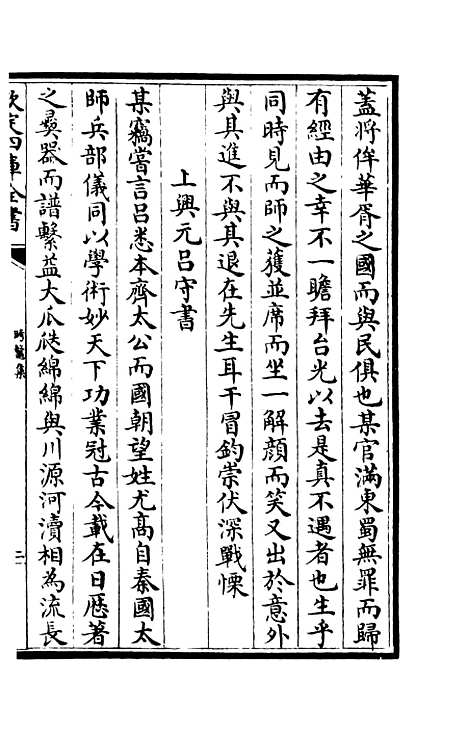 蓋將侔華胥之國而與民俱也某官滿東蜀無罪而歸
有經由之幸不一瞻拜台光以去是真不遇者也生乎
同時見而師之獲並席而坐一解顔而笑又出於意外
與其進不與其退在先生耳干冒鈞崇伏深戰慄
上興元吕守書
某竊嘗言吕悉本齊太公而國朝望姓尤髙自秦國太
師兵部儀同以學術妙天下功業冠古今載在日厯著
之彛器而譜繫益大瓜瓞綿綿與川源河瀆相為流長
欽定四庫全書